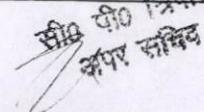 सी० पी०
अपर सचिव